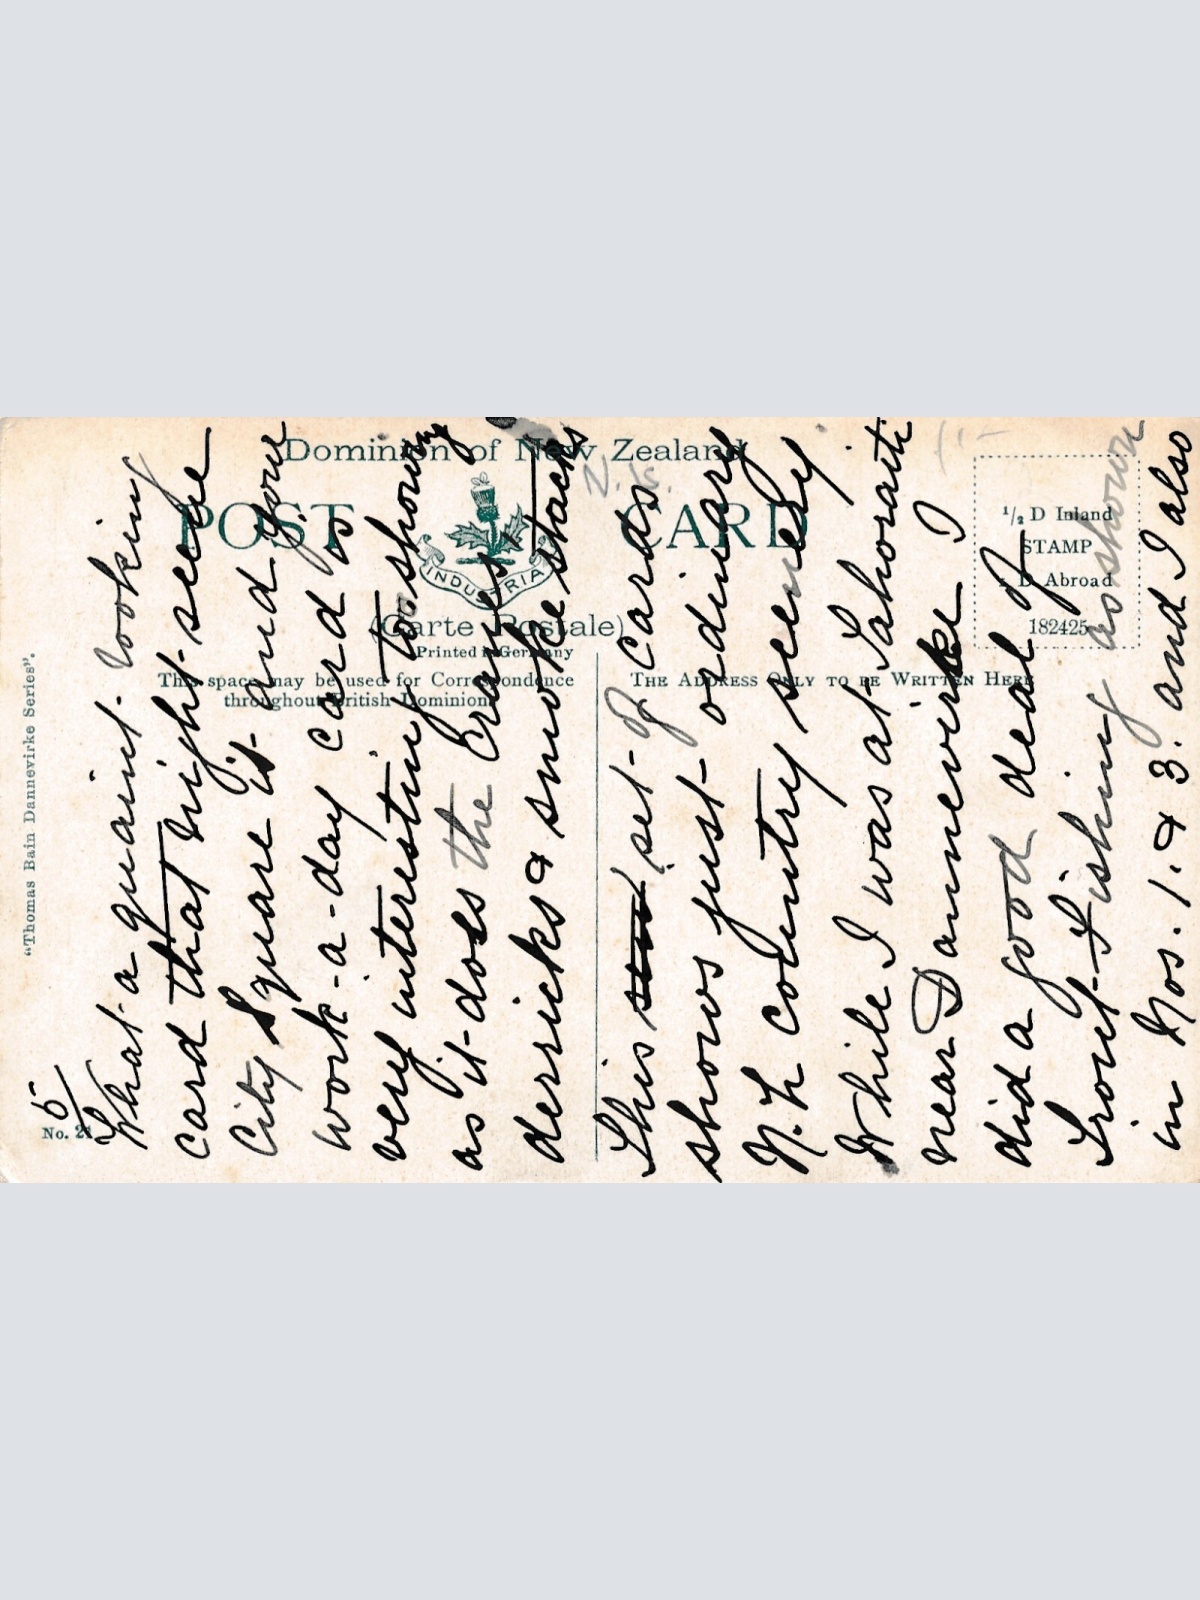 "Thomas Bain Dannevirke Series".
No. 21
5
Dominion of New Zealand
POST CARD
INDUSTRIA
(Carte Postale)
Printed in Germany
This space may be used for Correspondence
throughout British Dominions
THE ADDRESS ONLY TO BE WRITTEN HERE
½ D Inland
STAMP
1 D Abroad
182425
N.Z.
What a quaint looking
card that night-scene
City Square is and your
work-a-day card is
very interesting too showing
as it does the Cranes,
derricks & smoke stacks
This set of cards
shows just ordinary
N.Z. country scenery
While I was at Tahoraiti
near Dannevirke I
did a good deal of
Trout-Fishing as shown
in Nos. 1. & 3. and I also